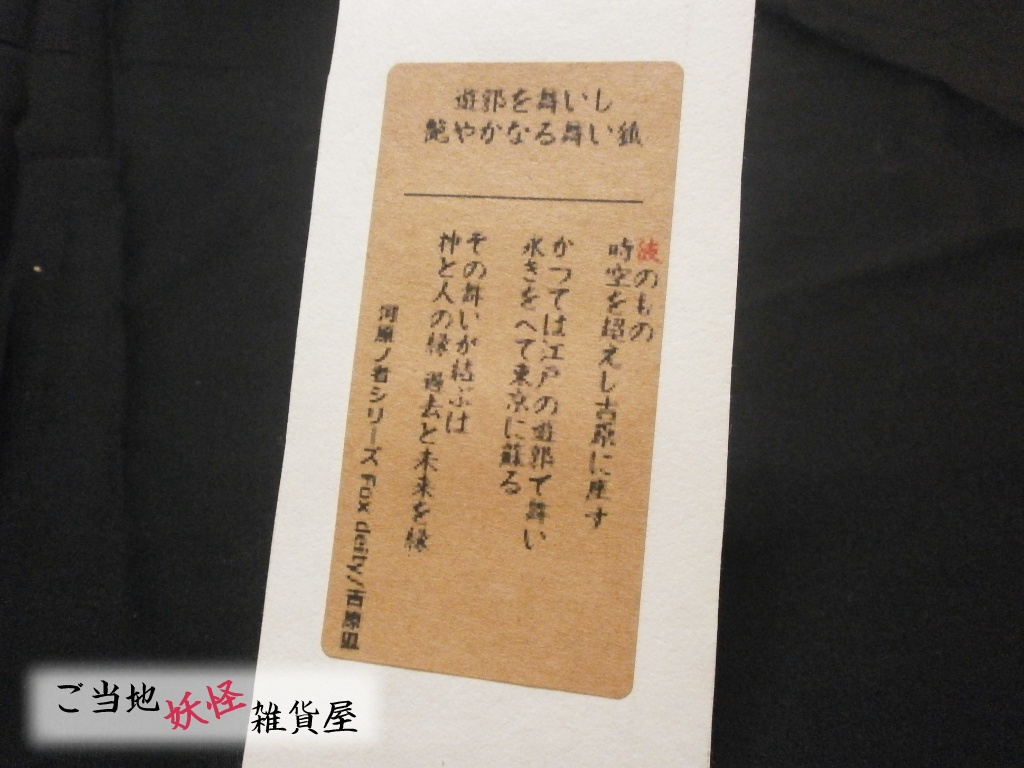 遊郭を舞いし
艶やかなる舞い狐
波のもの
時空を超えし吉原に座す
かつては江戸の遊郭で舞い
永きをへて東京に蘇る
その舞いが結ぶは
神と人の縁 過去と未来を縁
河原ノ者シリーズ Fox deity/吉原狐
ご当地妖怪雑貨屋